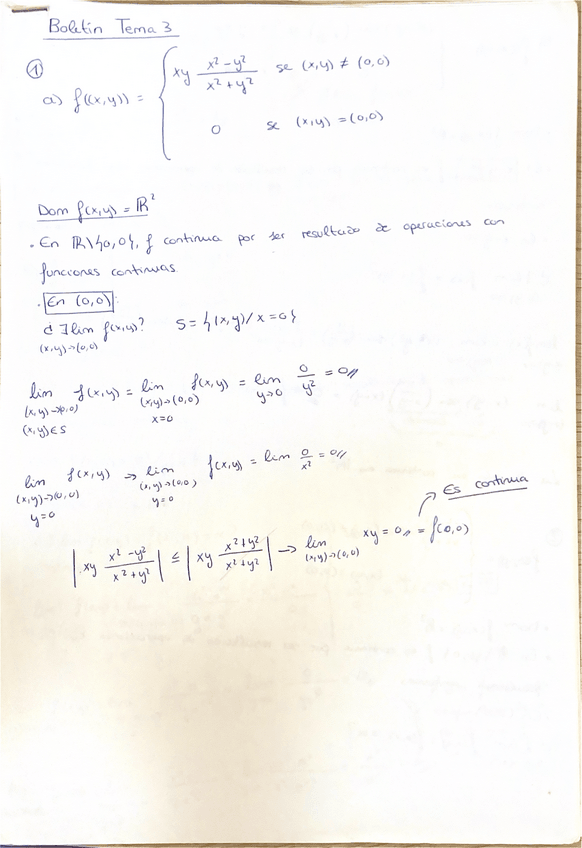 Boletín Tema 3
① a) f((x,y)) = { xy (x² - y²)/(x² + y²) se (x,y) ≠ (0,0)
0 se (x,y) = (0,0)
Dom f(x,y) = ℝ²
. En ℝ\{0,0}, f continua por ser resultado de operaciones con
funciones continuas.
. En (0,0):
¿∃ lim (x,y)→(0,0) f(x,y)? S = {(x,y)/ x=0}
lim (x,y)→(0,0) (x,y)∈S f(x,y) = lim (x,y)→(0,0) x=0 f(x,y) = lim y→0 0/y² = 0//
lim (x,y)→(0,0) y=0 f(x,y) → lim (x,y)→(0,0) y=0 f(x,y) = lim 0/x² = 0//
Es continua
|xy (x² - y²)/(x² + y²)| ≤ |xy (x² + y²)/(x² + y²)| → lim (x,y)→(0,0) xy = 0// = f(0,0)